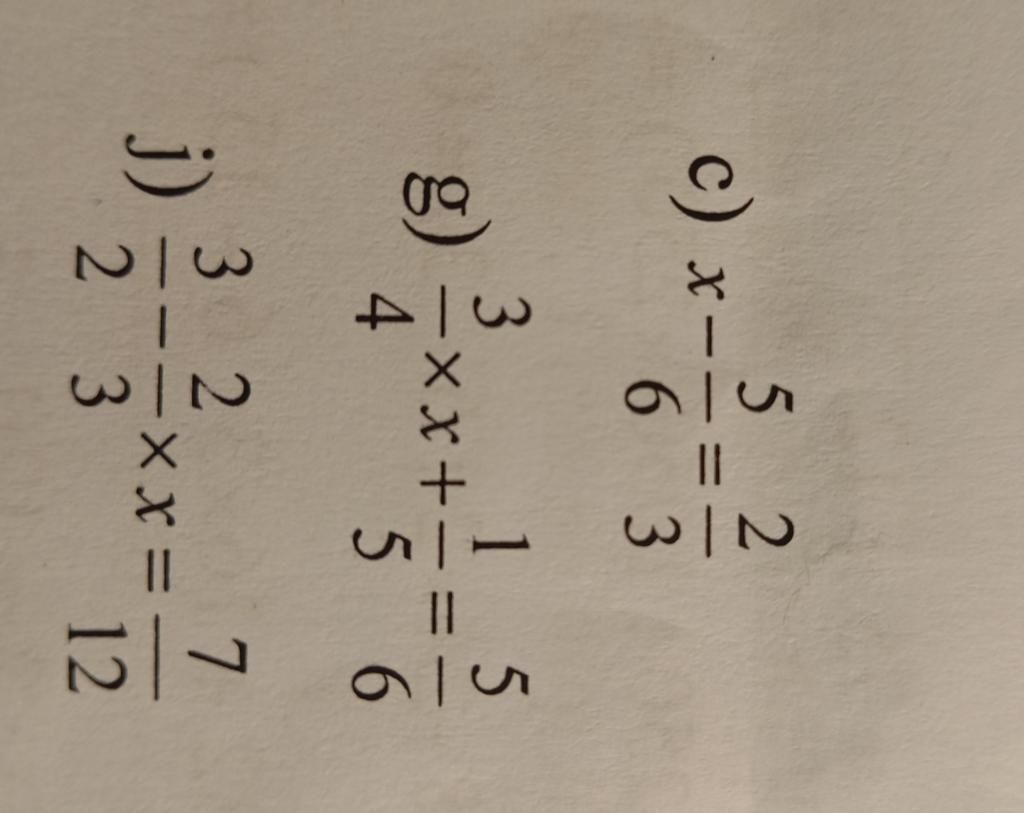 c) x − 5/6 = 2/3
g) 3/4 × x + 1/5 = 5/6
j) 3/2 − 2/3 × x = 7/12